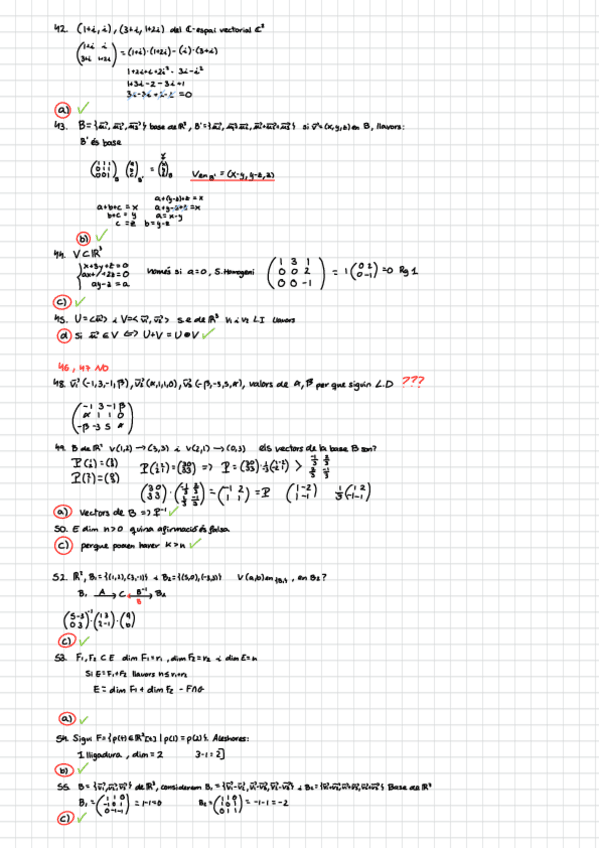 42. (1+i, i), (3+i, 1+2i) del ℂ-espai vectorial ℂ²
(1+i i / 3+i 1+2i) = (1+i)·(1+2i) - (i)·(3+i)
1+2i+i+2i² - 3i - i²
1+3i-2-3i+1
3i-3i+1-1 = 0
a) ✓
43. B = {u₁, u₂, u₃} base de ℝ³, B' = si v = (x,y,z) en B, llavors:
B' és base
(1 1 1 / 0 1 1 / 0 0 1)B (a / b / c)B' = (x / y / z)B
V en B' = (x-y, y-z, z)
a+b+c = x
b+c = y
c = z b = y-z
a+(y-z)+z = x
a+y-z+z = x
a = x-y
b) ✓
44. V⊂ℝ³
x+3y+z=0
+2z=0
ay-z = a
Només si a=0, S. Homogeni
(1 3 1 / 0 0 2 / 0 0 -1) = 1(0 2 / 0 -1) = 0 Rg 1
c) ✓
45. U = <u> i V = <v₁, v₂> s.e de ℝ³ v₁ i v₂ LI llavors
d) Si u ∉ V <=> U+V = U⊕V ✓
46, 47 NO
48. v₁(-1,3,-1,β), v₂(α,1,1,0), v₃(-β,-3,5,α), valors de α, β per que siguin L.D ???
(-1 3 -1 β / α 1 1 0 / -β -3 5 α)
49. B de ℝ² v(1,2) → (3,3) i v(2,1) → (0,3) els vectors de la base B son?
a) Vectors de B => P⁻¹ ✓
50. E dim n>0 quina afirmació és falsa
c) perque poden haver k>n ✓
52. ℝ², B₁ = {(1,2),(3,-1)} i B₂ = {(5,0),(-3,3)} V(a,b) en {B₁}, en B₂?
B₁ A→ C B⁻¹→ B₂
B
(5 -3 / 0 3)⁻¹·(1 3 / 2 -1)·(a / b)
c) ✓
53. F₁, F₂ ⊂ E dim F₁=r₁, dim F₂=r₂ i dim E=n
Si E=F₁+F₂ llavors n≤r₁+r₂
E = dim F₁ + dim F₂ - F∩G
a) ✓
54. Sigui F = {p(t) ∈ ℝ²[t] | p(1) = p(2)}. Aleshores:
1 lligadura, dim = 2 3-1 = 2]
b) ✓
55. B = {v₁, v₂, v₃} de ℝ³, considerem B₁ = i B₂ = Base de ℝ³
B₁ = (1 1 0 / -1 0 1 / 0 -1 -1) = 1-1=0 B₂ = (1 1 0 / 1 0 1 / 0 1 1) = -1-1 = -2
c) ✓